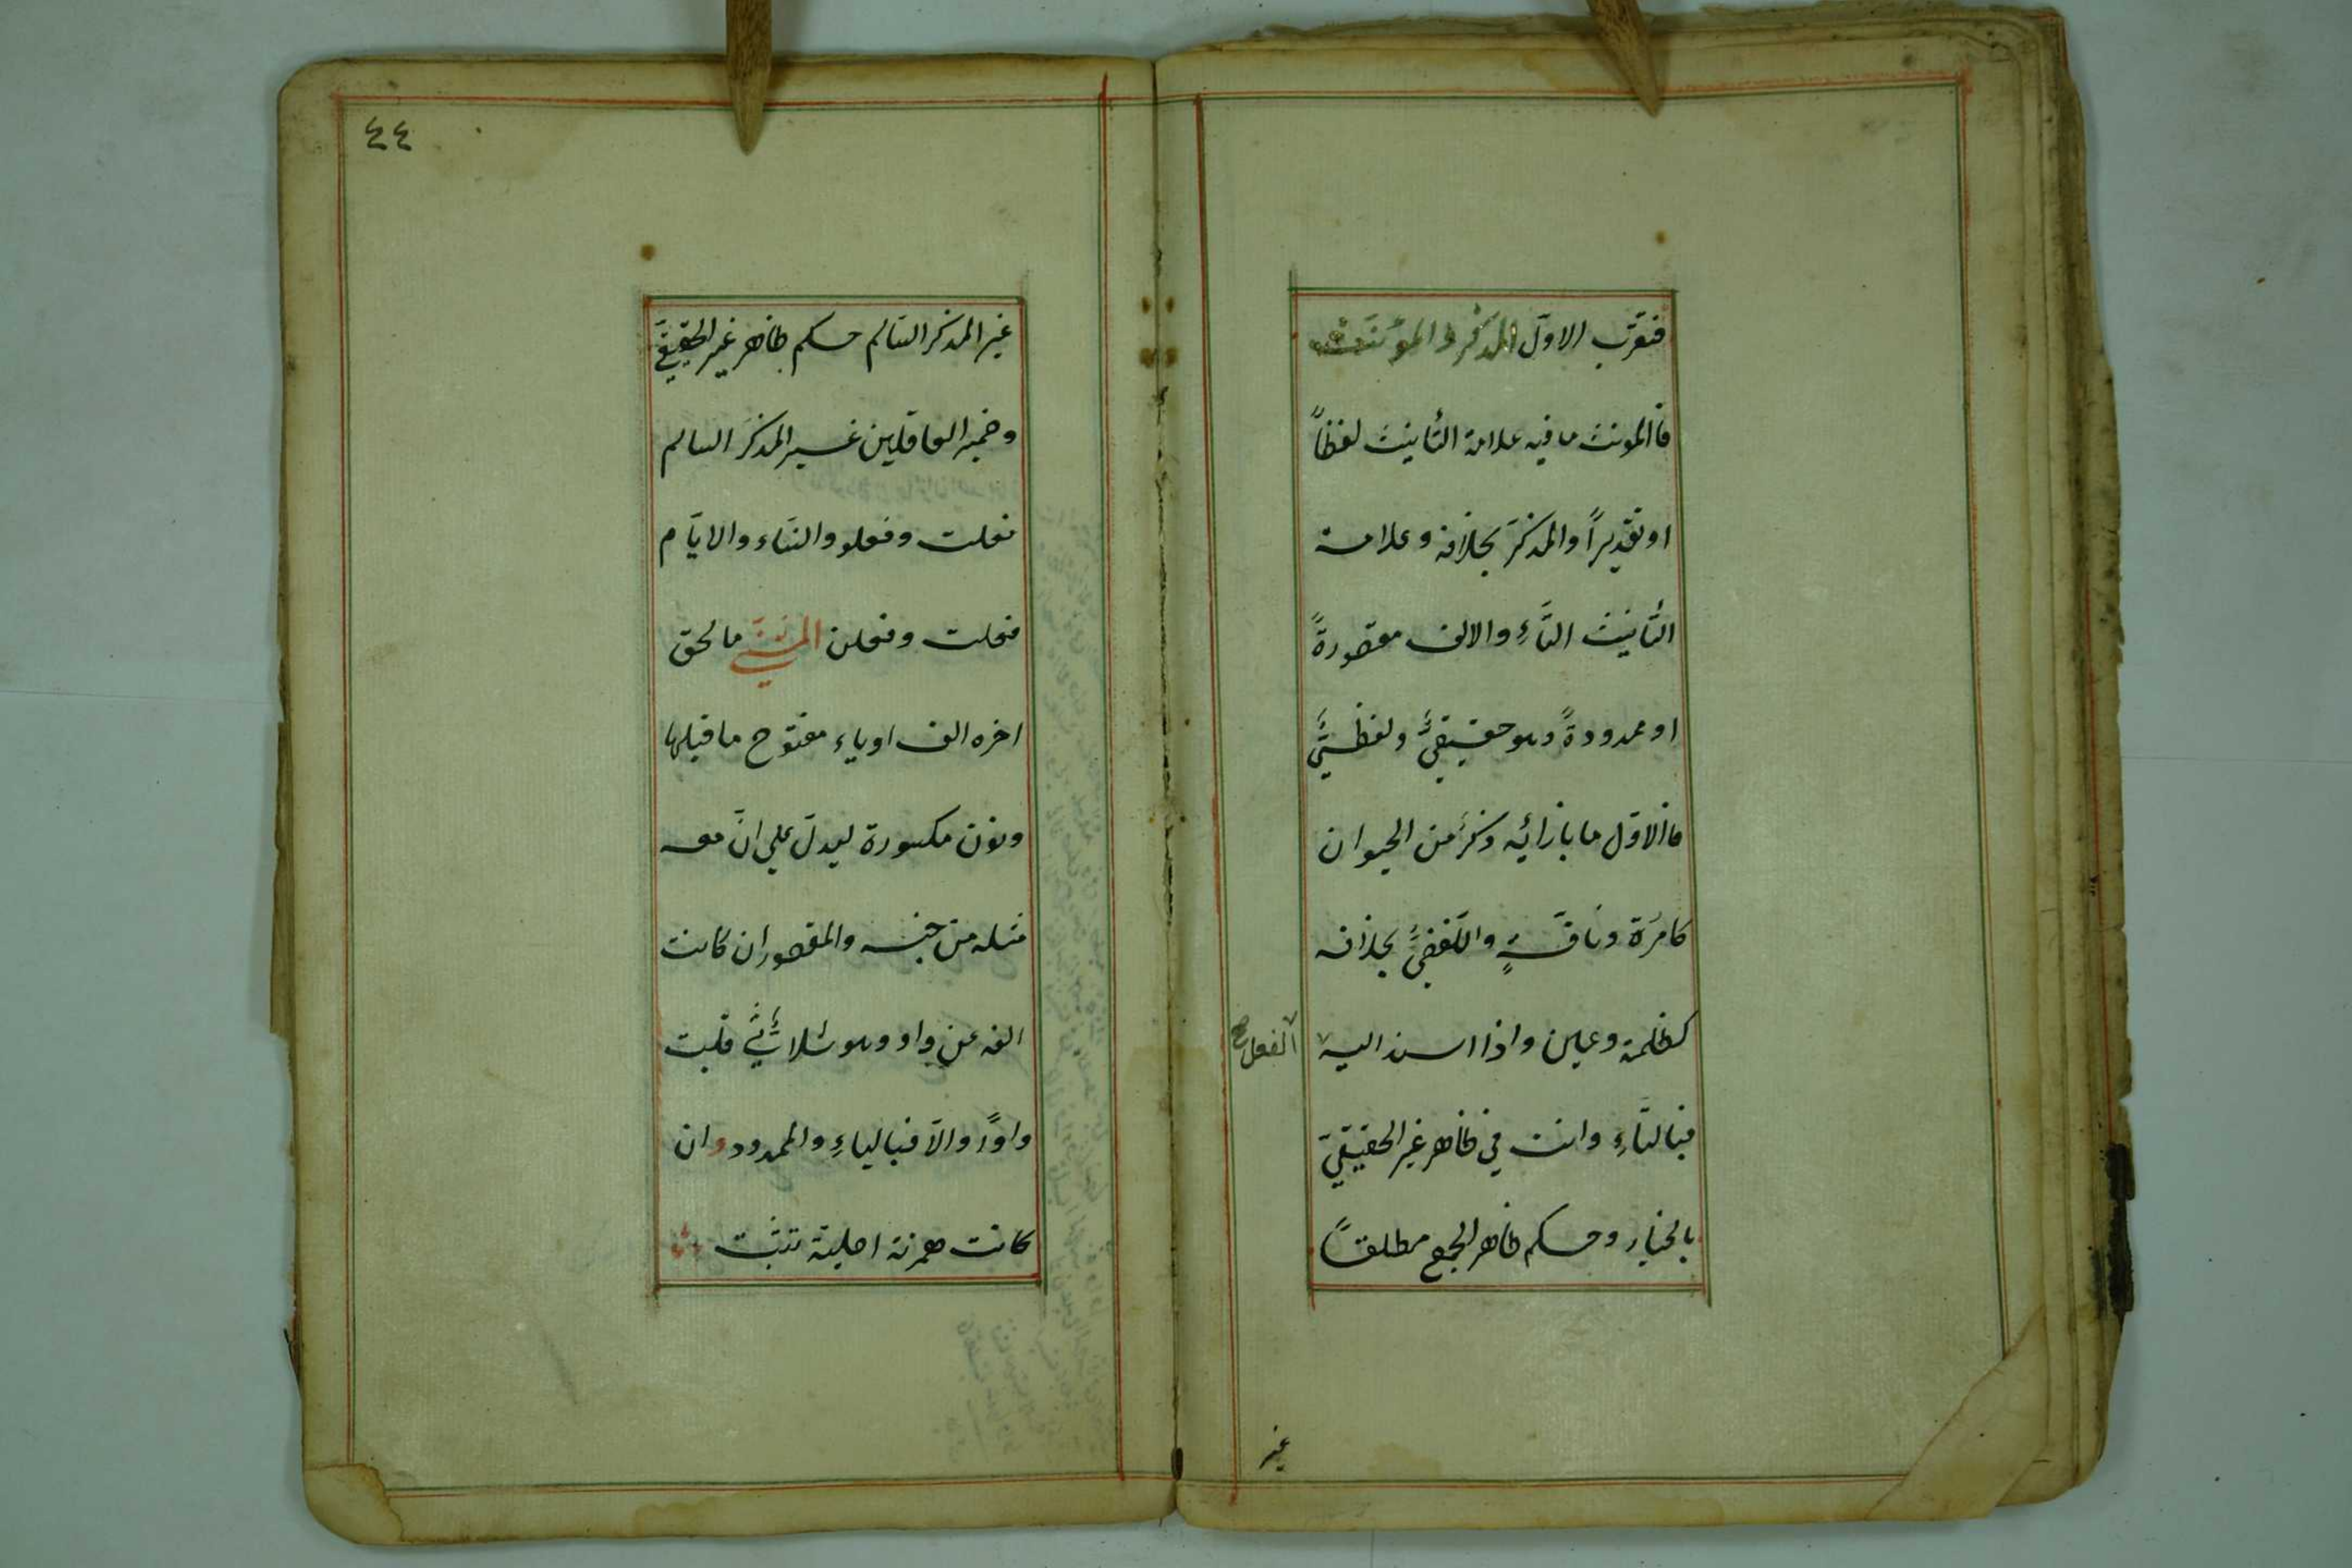 فتعرّب الاوّل المذكر والمؤنّث
فاالمونث ما فيه علامة التأنيث لفظاً
او تقديراً والمذكرَ بخلافه وعلامة
التأنيث التَّاءِ والالف مقصورةً
او ممدودةً وهو حقيقيٌّ ولفظيٌّ
فاالاوّل ما بازائه ذكرٌ من الحيوان
كامرَة وناقةٍ واللّفظيُّ بخلافه
كظلمة وعين واذا اسند اليه
الفعل صح
فبالتّاءِ وانت في ظاهر غير الحقيقيّ
بالخيار وحكم ظاهر الجمع مطلقاً
غير
٤٤
غير المذكر السّالم حكم ظاهر غير الحقيقيّ
وضمير العاقلين غير المذكرَ السالم
فعلت وفعلو والنّساء والايّام
فعلت وفعلن المثنّي ما لحق
اخره الف اوياء مفتوح ما قبلها
ونون مكسورة ليدلّ علي انّ معه
مثله من جنسه والمقصور ان كانت
الفه عن واو وهو ثلاثيٌّ قلبت
واوًا والّا فبالياءِ والممدود وان
كانت همزته اصلية تثبت